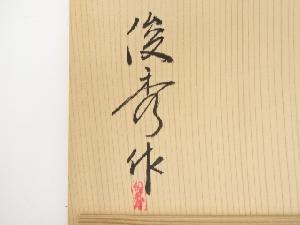 俊秀作